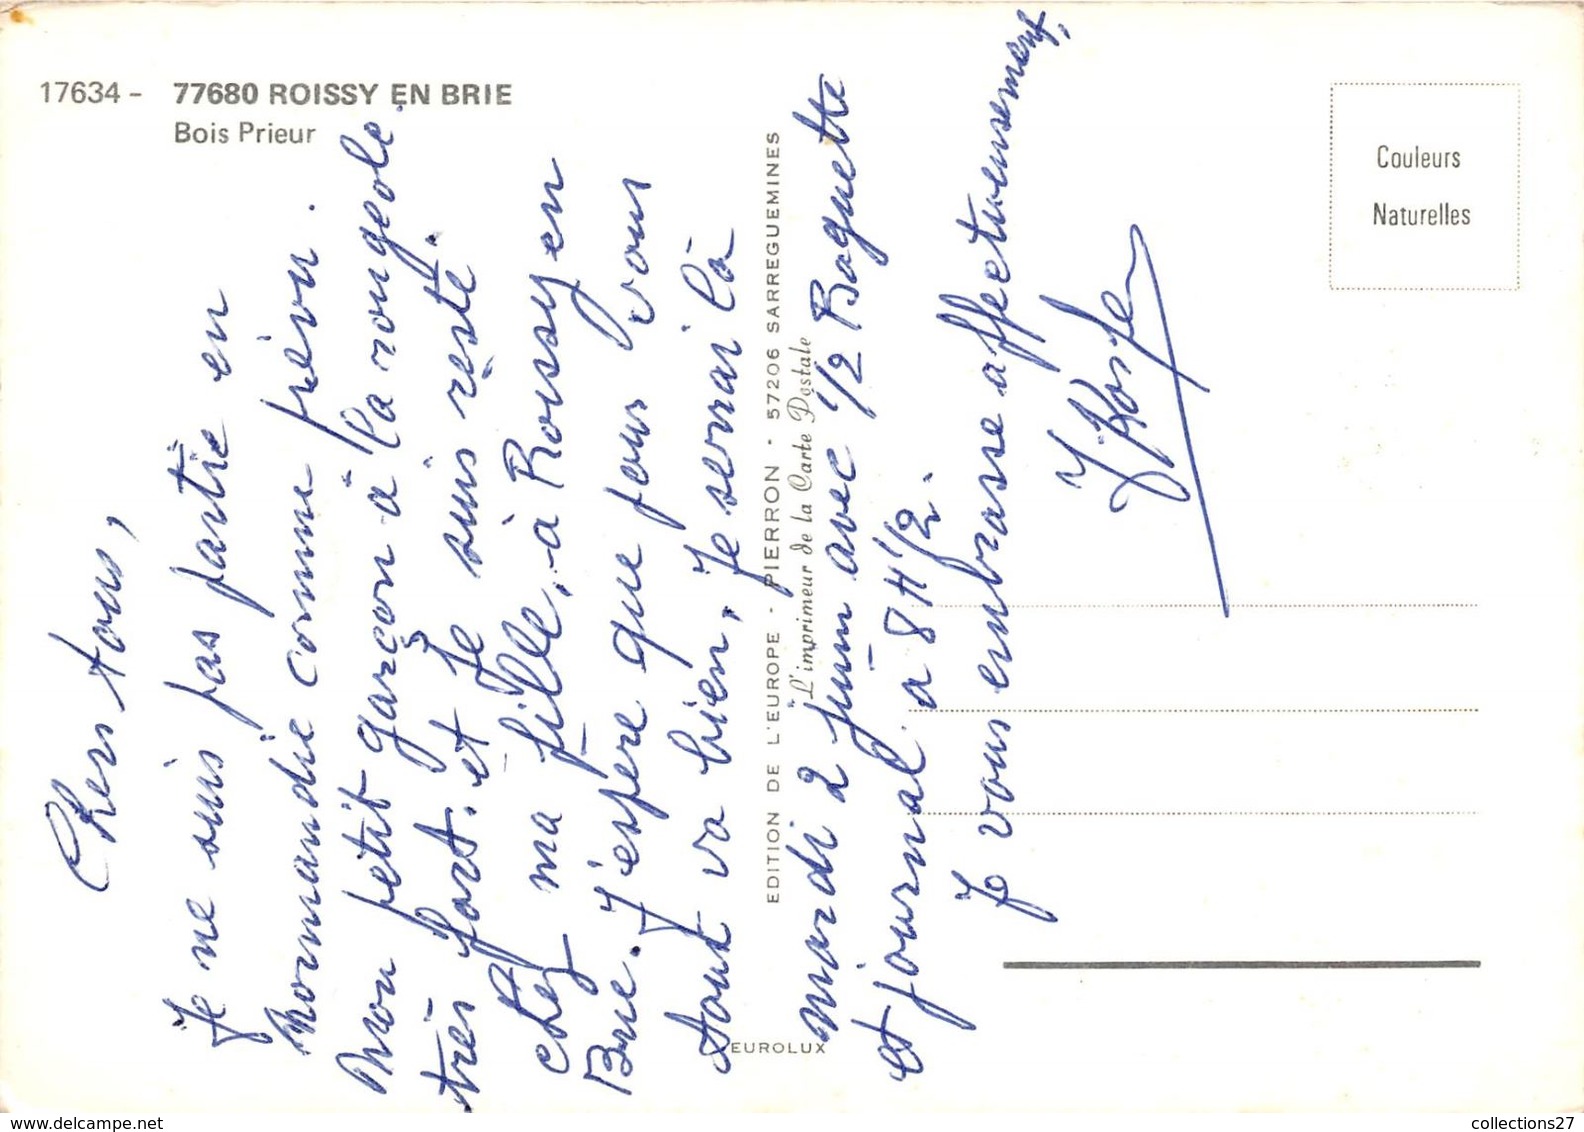 17634 - 77680 ROISSY EN BRIE
Bois Prieur
Couleurs
Naturelles
EDITION DE L'EUROPE - PIERRON - 57206 SARREGUEMINES
"L'imprimeur de la Carte Postale
EUROLUX
Chers tous,
Je ne suis pas partie en
Normandie comme prévu.
Mon petit garçon à la rougeole.
très fort. et Je suis resté.
chez ma fille, à Roissy en
Brie. J'espère que pour vous
tout va bien, Je serrai là
mardi 2 juin avec 1/2 Baguette
et journal à 8H 1/2.
Je vous embrasse affectueusement,
collections27